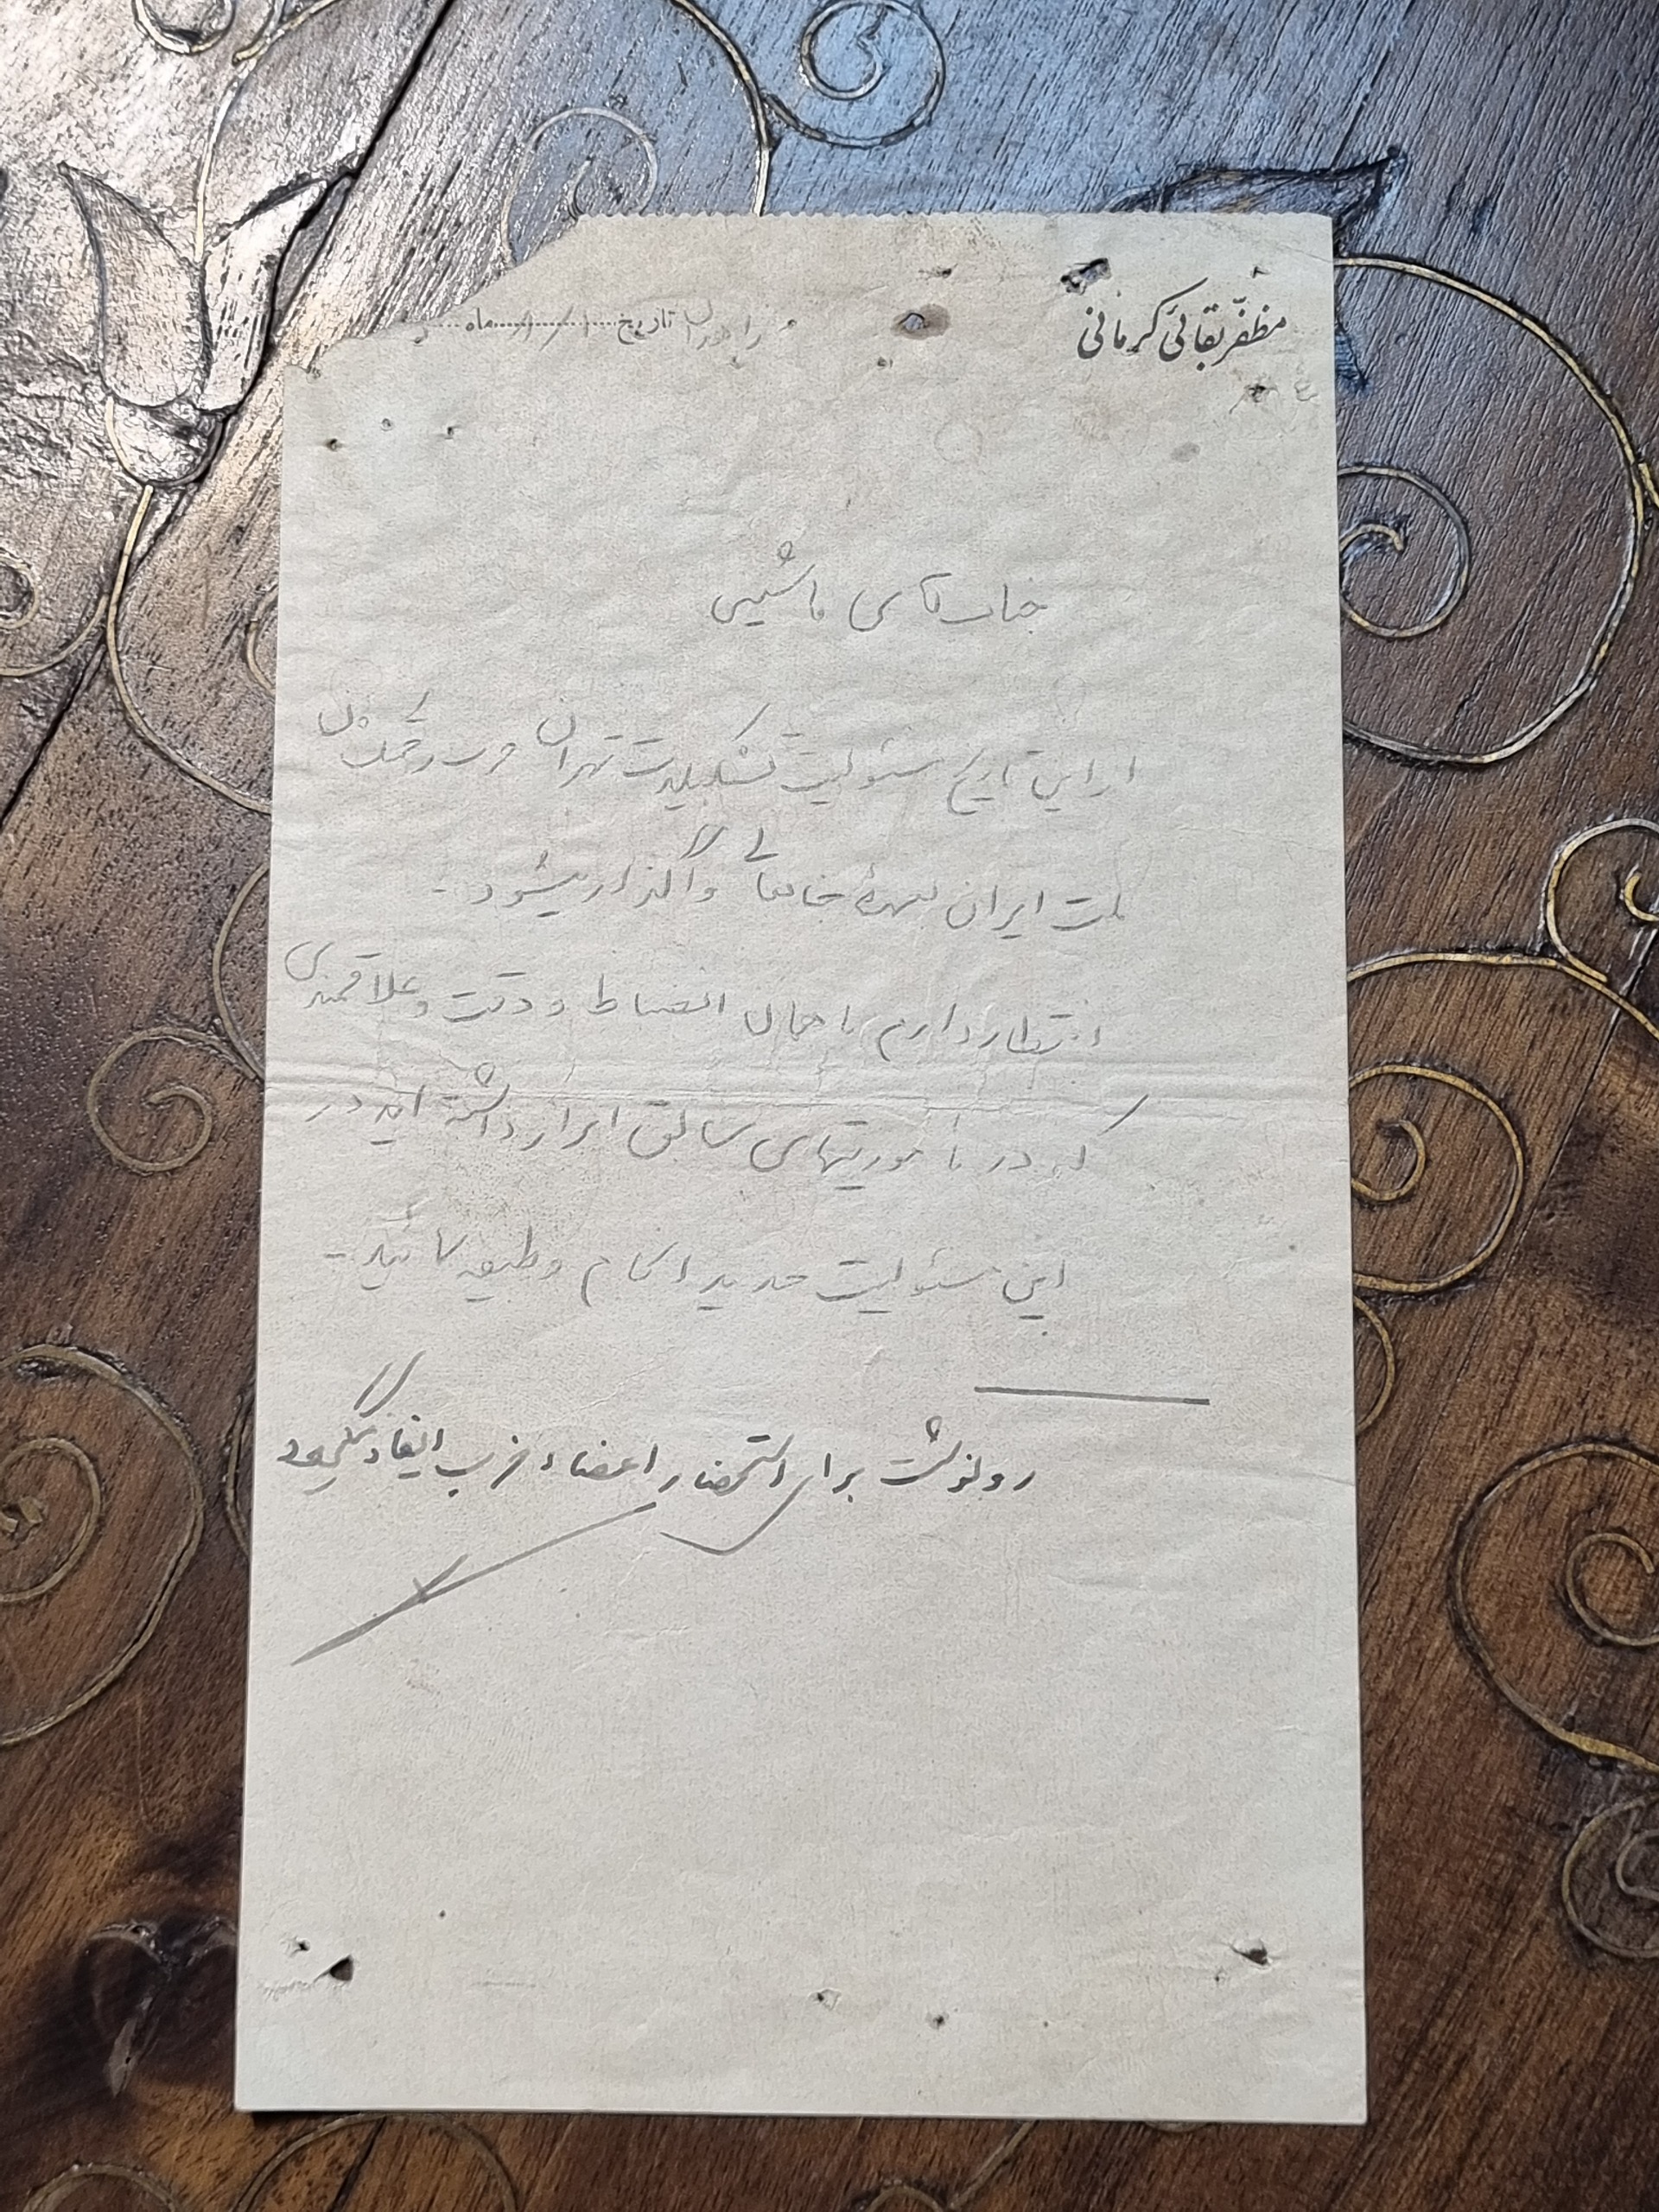 مظفّر بقائی کرمانی
زاهدان تاریخ ماه
جناب آقای هاشمی
از این تاریخ مسئولیت تشکیلات تهران حزب زحمتکشان
ملت ایران بعهدهٔ جنابعالی واگذار میشود -
انتظار دارم با همان انضباط و دقت و علاقمندی
که در ماموریتهای سابق ابراز داشته اید در
این مسئولیت جدید انجام وظیفه نمائید -
رونوشت برای استحضار اعضاء حزب ایفاد میگردد